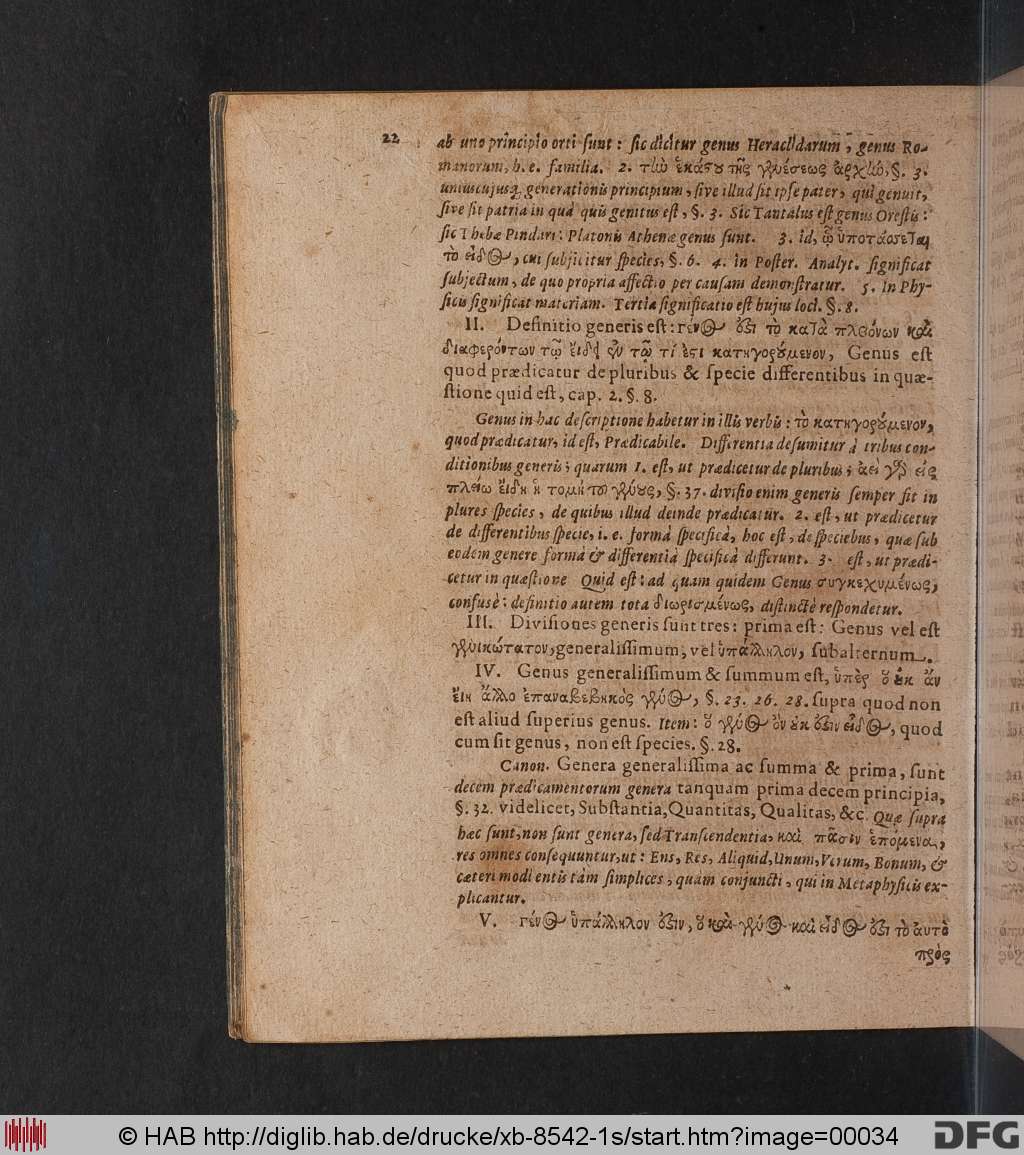 22
ab uno principio orti sunt : sic dicitur genus Heraclidarum, genus Ro-
manorum, h. e. familia. 2. τὴν ἑκάστου τῆς γενέσεως ἀρχὴν, §. 3.
uniuscujusq; generationis principium, sive illud sit ipse pater, qui genuit,
sive sit patria in quâ quis genitus est, §. 3. Sic Tantalus est genus Orestis:
sic Thebæ Pindari: Platonis Athenæ genus sunt. 3. id, ᾧ ὑποτάσσεται
τὸ εἶδος, cui subjicitur species, §. 6. 4. in Poster. Analyt. significat
subjectum, de quo propria affectio per causam demonstratur. 5. In Phy-
sicis significat materiam. Tertia significatio est hujus loci. §. 8.
II. Definitio generis est: γένος ἐστι τὸ κατὰ πλειόνων καὶ
διαφερόντων τῷ εἴδει ἐν τῷ τί ἐστι κατηγορούμενον, Genus est
quod prædicatur de pluribus & specie differentibus in quæ-
stione quid est, cap. 2. §. 8.
Genus in hac descriptione habetur in illis verbis: τὸ κατηγορούμενον,
quod prædicatur, id est, Prædicabile. Differentia desumitur à tribus con-
ditionibus generis; quarum 1. est, ut prædicetur de pluribus; ἀεὶ γὰρ εἰς
πλείω εἴδη ἡ τομὴ τοῦ γένους, §. 37. divisio enim generis semper fit in
plures species, de quibus illud deinde prædicatur. 2. est, ut prædicetur
de differentibus specie, i. e. formâ specificâ, hoc est, de speciebus, quæ sub
eodem genere formâ & differentiâ specificâ differunt. 3. est, ut prædi-
cetur in quæstione Quid est: ad quam quidem Genus συγκεχυμένως,
confusè: definitio autem tota διωρισμένως, distinctè respondetur.
III. Divisiones generis sunt tres: prima est: Genus vel est
γενικώτατον, generalissimum, vel ὑπάλληλον, subalternum.
IV. Genus generalissimum & summum est, ὑπὲρ ὃ οὐκ ἂν
εἴη ἄλλο ἐπαναβεβηκὸς γένος, §. 23. 26. 28. supra quod non
est aliud superius genus. Item: ὃ γένος ὂν οὐκ ἐστιν εἶδος, quod
cum sit genus, non est species. §. 28.
Canon. Genera generalissima ac summa & prima, sunt
decem prædicamentorum genera tanquam prima decem principia,
§. 32. videlicet, Substantia, Quantitas, Qualitas, &c. Quæ supra
hæc sunt, non sunt genera, sed Transcendentia, καὶ πᾶσιν ἑπόμενα,
res omnes consequuntur, ut: Ens, Res, Aliquid, Unum, Verum, Bonum, &
cæteri modi entis tàm simplices, quàm conjuncti, qui in Metaphysicis ex-
plicantur.
V. γένος ὑπάλληλον ἐστιν, ὃ καὶ γένος καὶ εἶδος ἐστι τὸ αὐτὸ
πρὸς
© HAB http://diglib.hab.de/drucke/xb-8542-1s/start.htm?image=00034
DFG